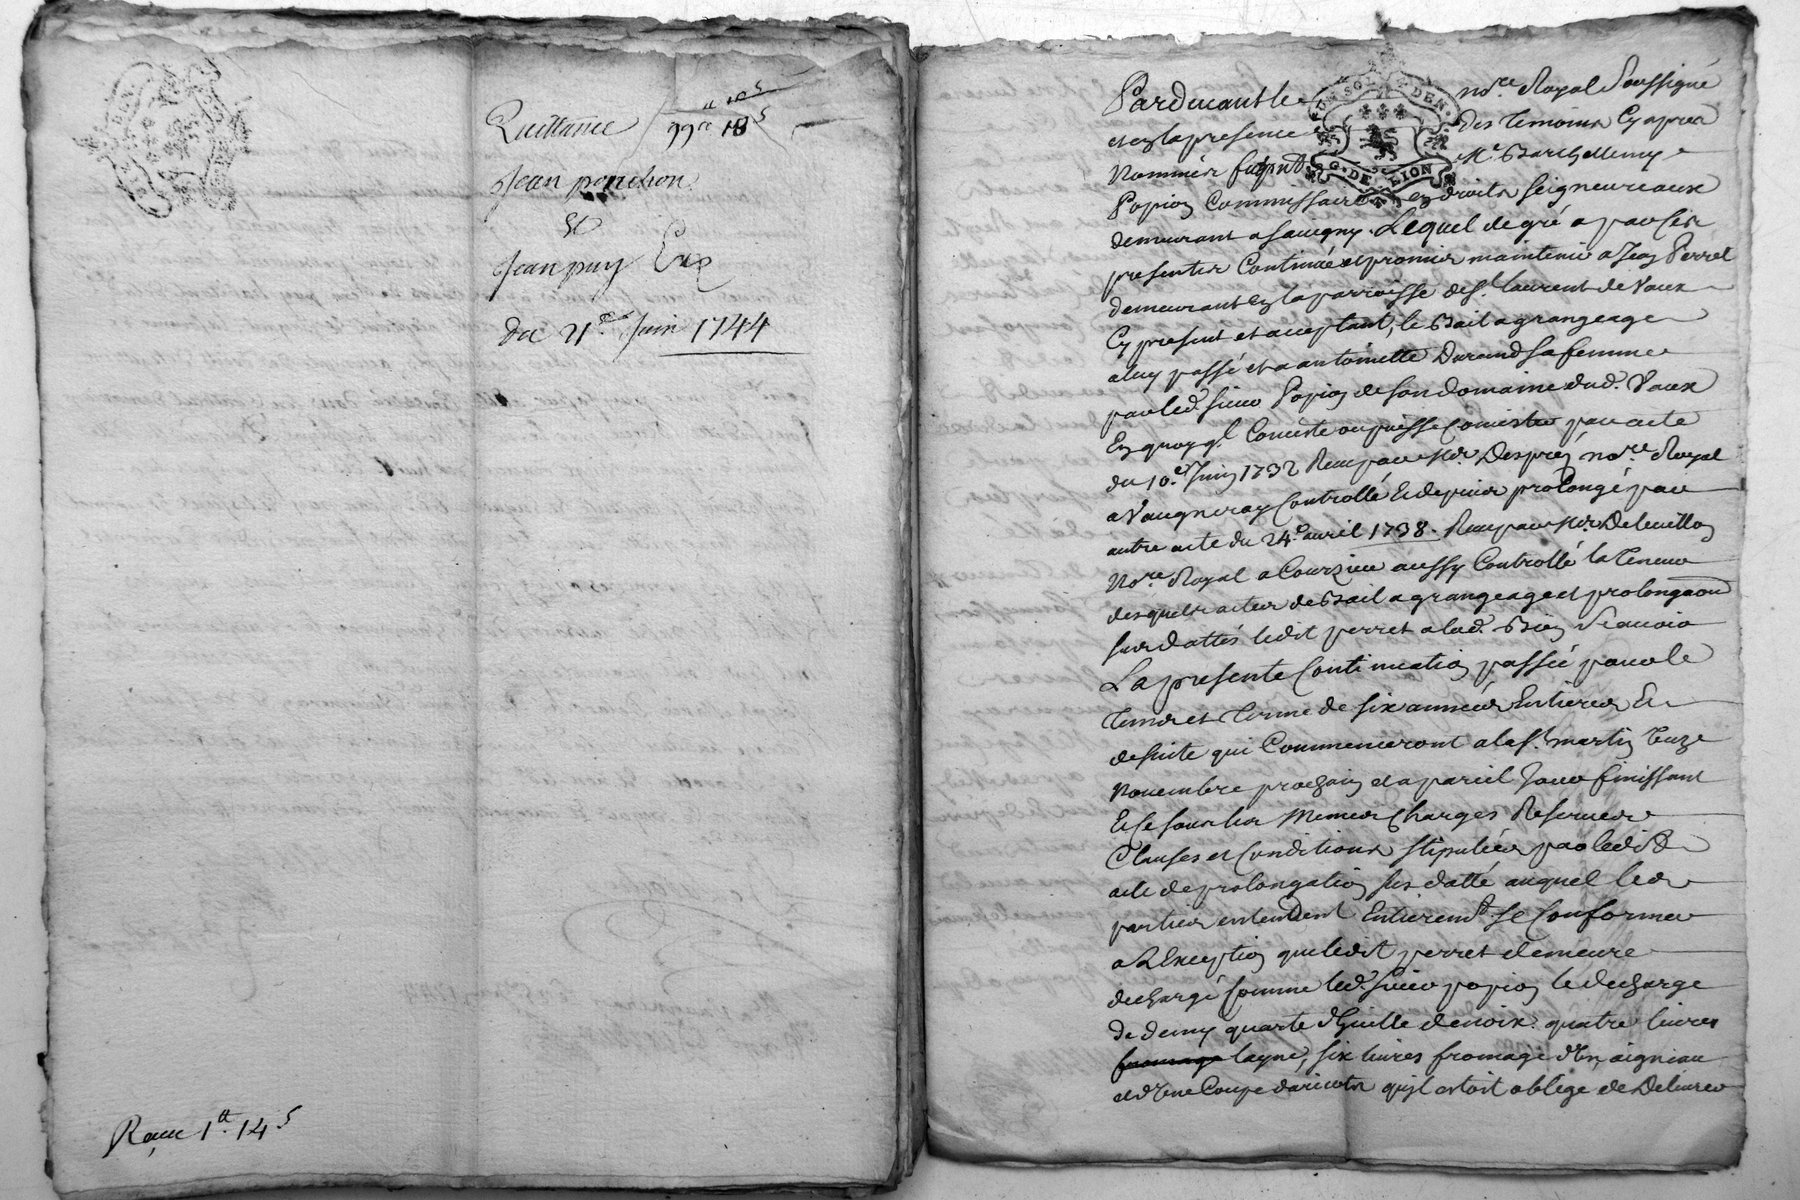 Quittance 99tt 18s
Jean ponchon
Et
Jean puy
du 21e Juin 1744
Recu 1tt 14s
UN SOL 4 DEN.
G. DE LION
Pardevant le nore Royal soussigné
et en la presence des temoins cy apres
Nommés fut pnt Me Barthellemy
Popion Commissaire en droits seigneuriaux
demeurant a savigny. Lequel de gré a par ses
presentes Continué et promis maintenir a Jean Perret
demeurant en la parroisse de st laurent de Vaux
Cy present et acceptant, le Bail a grangeage
a luy passé et a antoinette Durand sa femme
par led. sieur Popion de son domaine dud. Vaux
En quoy ql Consiste ou puisse Consister par acte
du 10e Juin 1732 Receu par Me Despréz nore Royal
a Vaugneray Controllé Et depuis prolongé par
autre acte du 24e avril 1738. Receu par Me
Nore Royal a Courzieu aussy Controllé la teneur
desquels actes de Bail a grangeage et prolongaon
sus dattés ledit perret a lad. Bien scavoir
La presente Continuation passée pour le
tems et terme de six années Entieres Et
de suite qui Commenceront a la st martin Unze
Novembre prochain et a pareil Jour finissant
Et ce sous les Memes Charges Reserves
Clauses et Conditions stipulées par ledit
acte de prolongation sus datté auquel les
parties entendent Entieremt se Conformer
a L'Exception que ledit perret demeure
dechargé Comme led. sieur popion le decharge
De demy quarte d'huille de noix. quatre livres
fromage layne, six livres fromage d'Un, aigneau
et d'Une Coupe daricots qu'il estoit oblegé de Delivrer